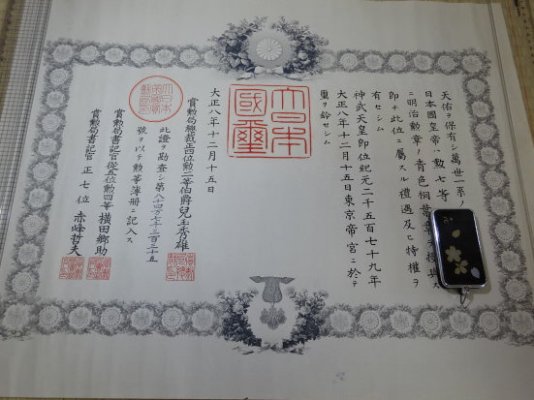 天佑ヲ保有シ萬世一系ノ
日本國皇帝ハ勲七等
ニ明治勲章ノ青色桐葉章ヲ授與ス
即チ此位ニ屬スル禮遇及ヒ特權ヲ
有セシム
神武天皇即位紀元二千五百七十九年
大正八年十二月十五日東京帝宮ニ於テ
璽ヲ鈐セシム
大日本國璽
大正八年十二月十五日
賞勲局總裁正四位勲一等伯爵兒玉秀雄
此證ヲ勘査シ第八十四万七千二百二十五
號ヲ以テ勲等簿冊ニ記入ス
賞勲局書記官從五位勲四等横田郷助
賞勲局書記官正七位赤峰哲夫